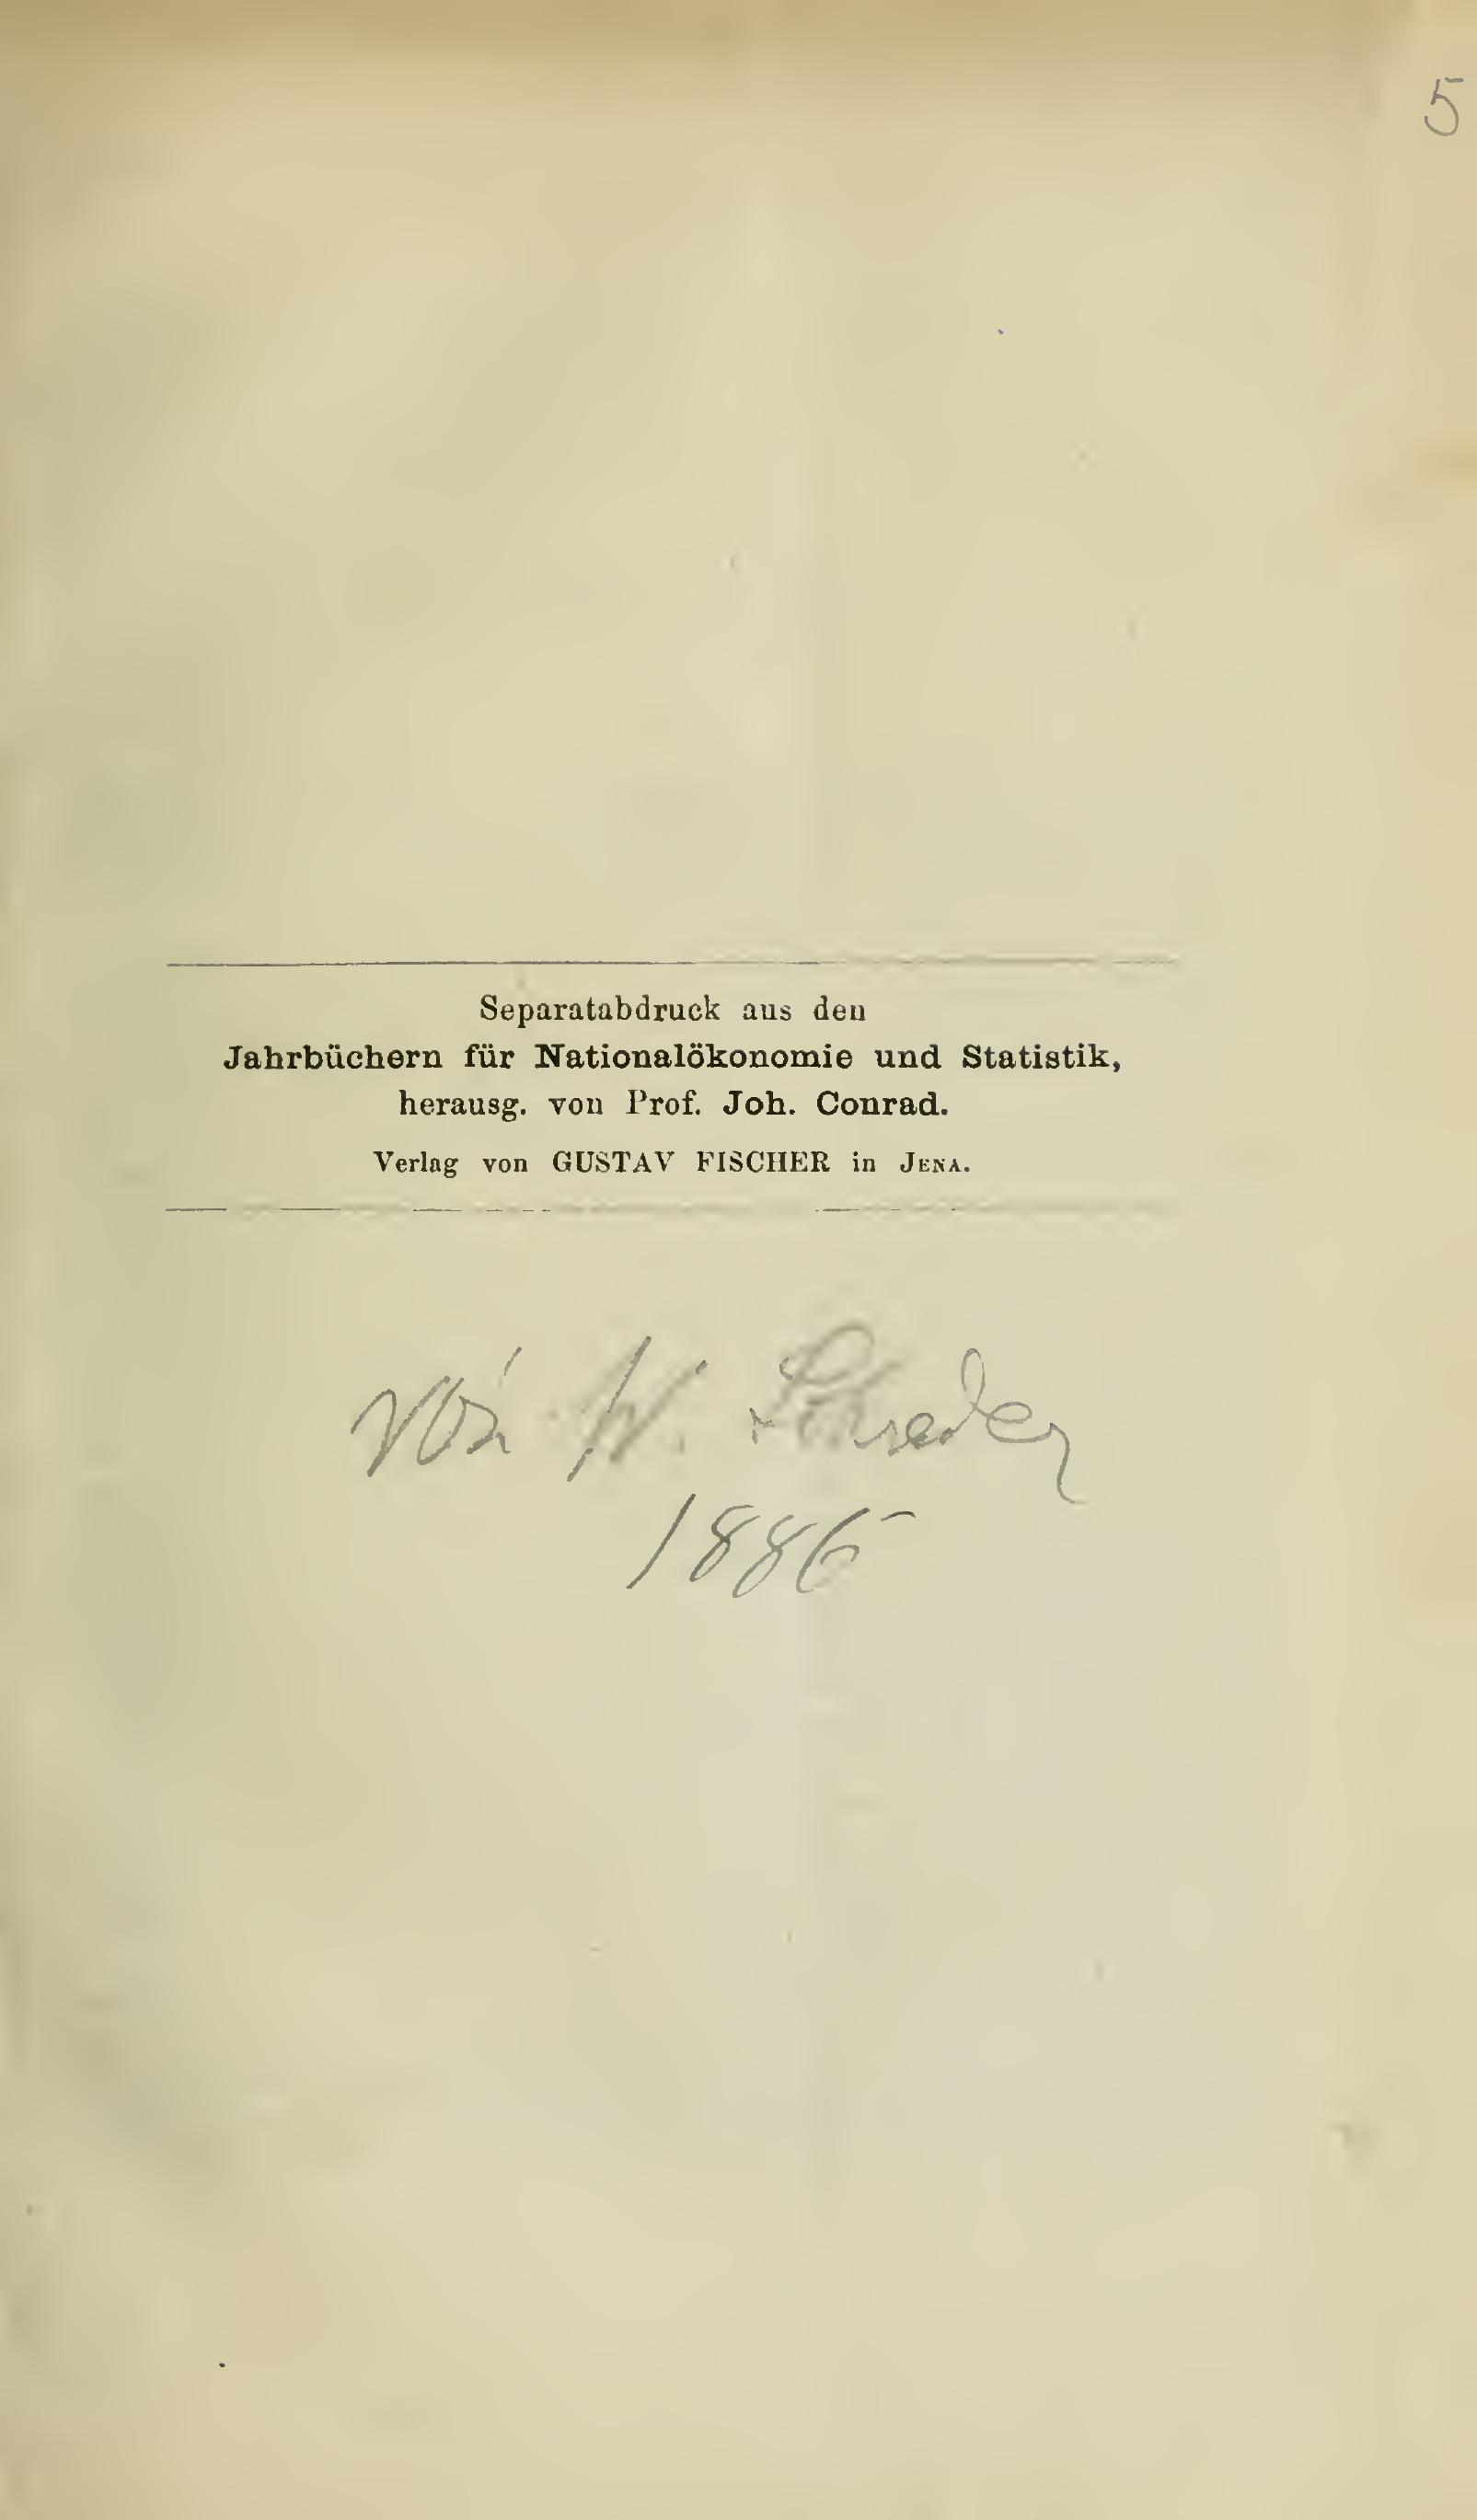 5
Separatabdruck aus den
Jahrbüchern für Nationalökonomie und Statistik,
herausg. von Prof. Joh. Conrad.
Verlag von GUSTAV FISCHER in JENA.
W. Schrader
1886